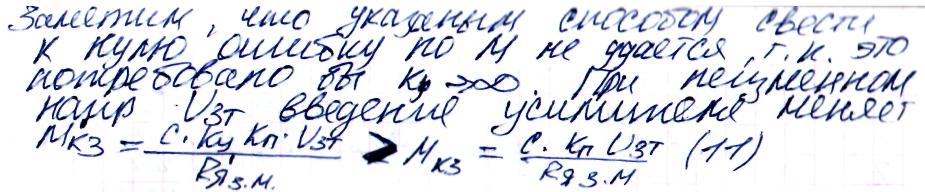 Заметим, что указанным способом свести
к нулю ошибку по М не удается, т.к. это
потребовало бы Kу→∞. При неизменном
напр Uзт введение усилителя меняет
Mкз = c·Kу Kп·Uзт / Rя з.м. > Mкз = c·Kп Uзт / Rя з.м (11)